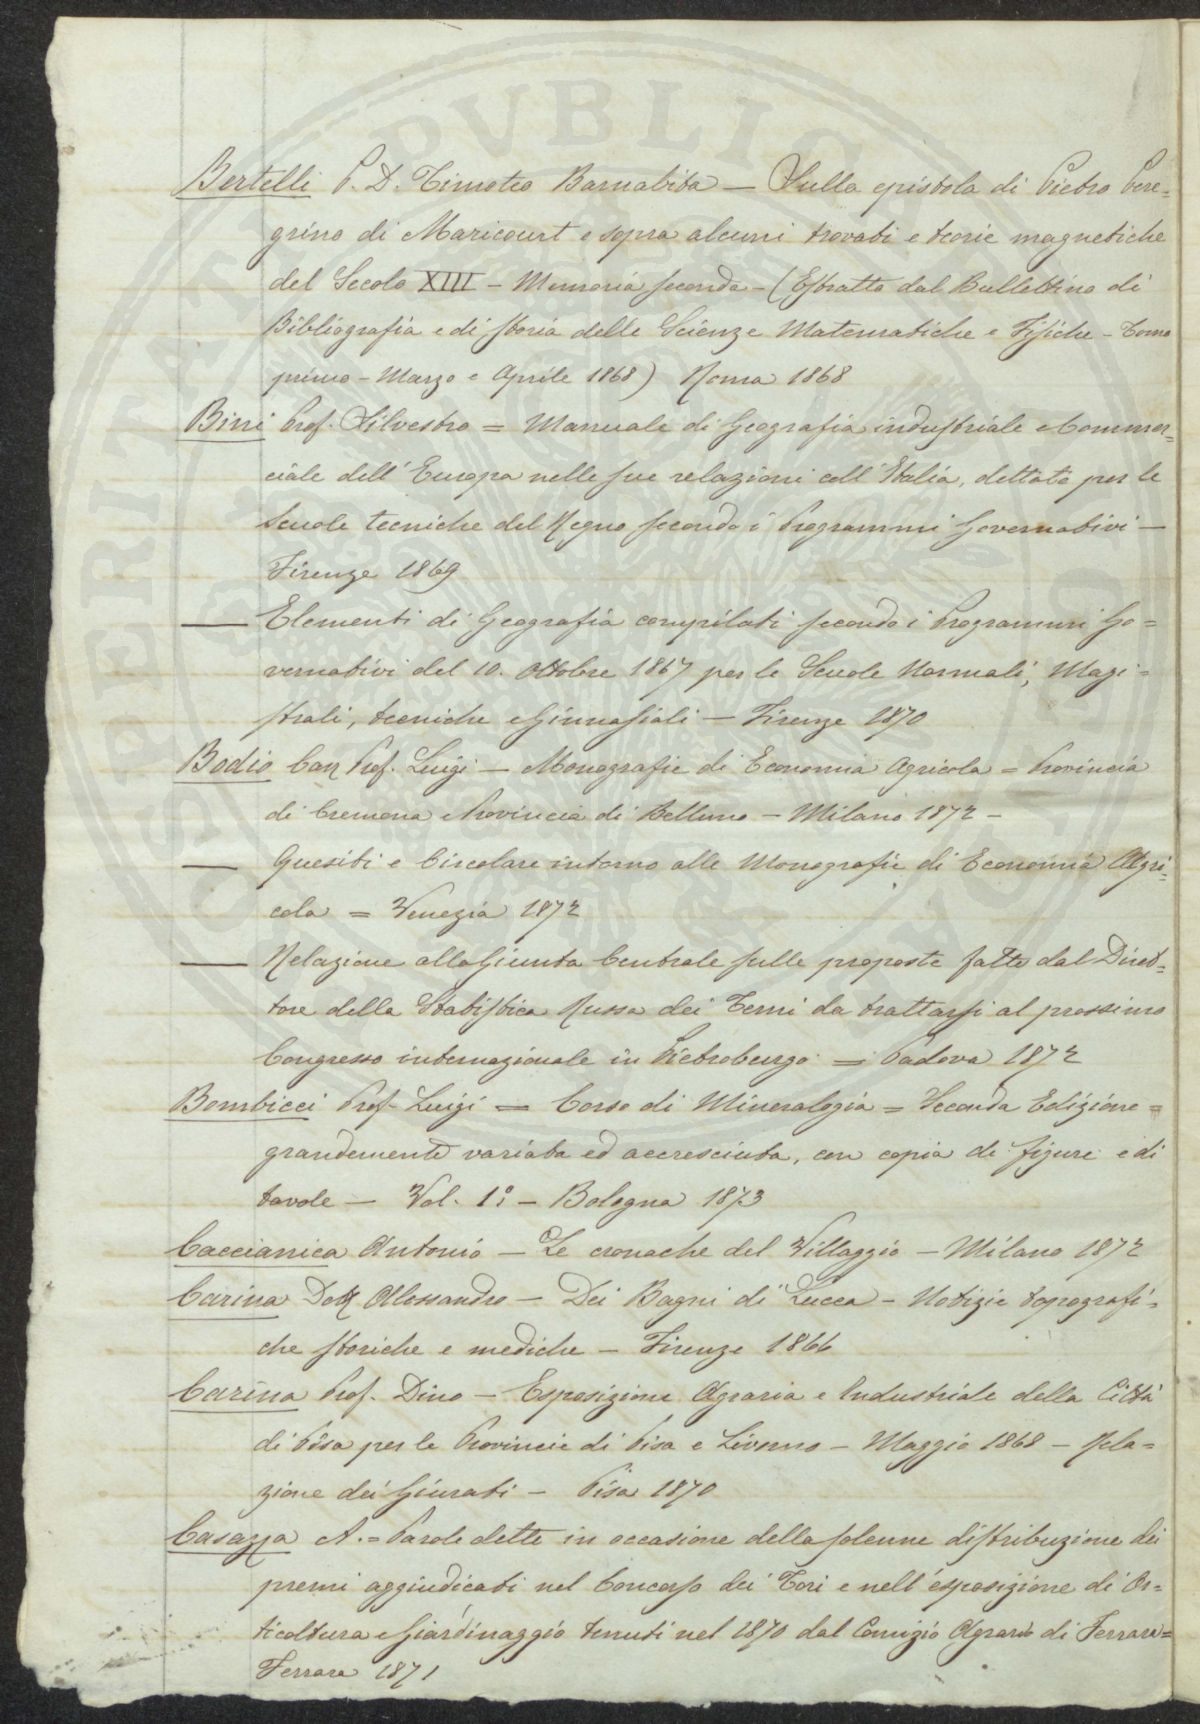 Bertelli P. D. Timoteo Barnabita — Sulla epistola di Pietro Pere=
grino di Maricourt e sopra alcuni trovati e teorie magnetiche
del Secolo XIII – Memoria seconda – (Estratto dal Bullettino di
Bibliografia e di storia delle Scienze Matematiche e Fisiche – Tomo
primo – Marzo e Aprile 1868) Roma 1868
Bini Prof. Silvestro = Manuale di Geografia industriale e Commer=
ciale dell'Europa nelle sue relazioni coll'Italia, dettato per le
Scuole tecniche del Regno secondo i Programmi Governativi —
Firenze 1869
— Elementi di Geografia compilati secondo i Programmi Go=
vernativi del 10. Ottobre 1867 per le Scuole Normali, Magi=
strali, tecniche e Ginnasiali — Firenze 1870
Bodio Cav Prof. Luigi — Monografie di Economia Agricola = Provincia
di Cremona e Provincia di Belluno – Milano 1872 –
— Quesiti e Circolare intorno alle Monografie di Economia Agri=
cola = Venezia 1872
— Relazione alla Giunta Centrale sulle proposte fatte dal Diret=
tore della Statistica Russa dei Temi da trattarsi al prossimo
Congresso internazionale in Pietroburgo = Padova 1872
Bombicci Prof. Luigi = Corso di Mineralogia = Seconda Edizione =
grandemente variata ed accresciuta, con copia di figure e di
tavole — Vol. 1º – Bologna 1873
Caccianica Antonio – Le cronache del Villaggio – Milano 1872
Carina Dott Alessandro – Dei Bagni di Lucca – Notizie topografi=
che storiche e mediche – Firenze 1866
Carina Prof. Dino – Esposizione Agraria e Industriale della Città
di Pisa per le Provincie di Pisa e Livorno – Maggio 1868 – Rela=
zione dei Giurati – Pisa 1870
Casazza A. = Parole dette in occasione della solenne distribuzione dei
premi aggiudicati nel Concorso dei Tori e nell'esposizione di Or=
ticoltura e Giardinaggio tenuti nel 1870 dal Comizio Agrario di Ferrara=
Ferrara 1871